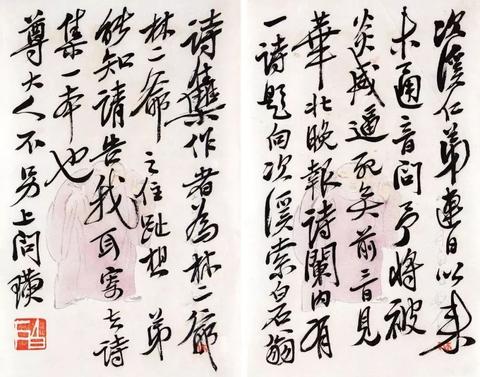 次溪仁弟連日以來
未通音問予將被
炎威逼死矣前見
華北晚報詩闌內有
一詩題向次溪索白石翁
詩集作者為林二爺
林二爺之住趾想弟
能知請告我寄去詩
集一本也
尊大人不另上問璜